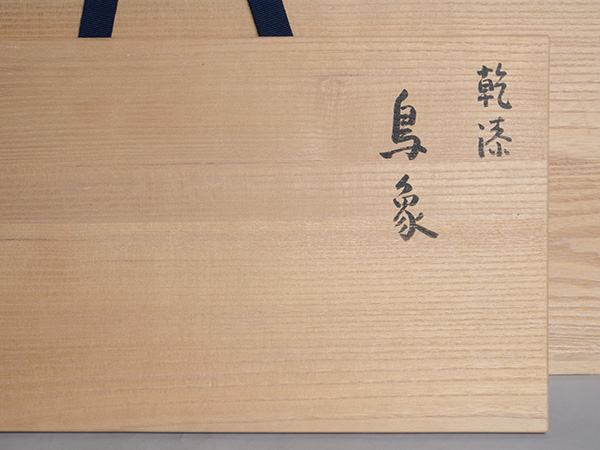 乾漆
鳥象